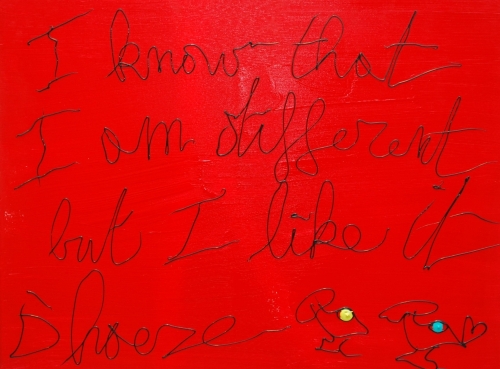 I know that
I am different
but I like it
Shoeze